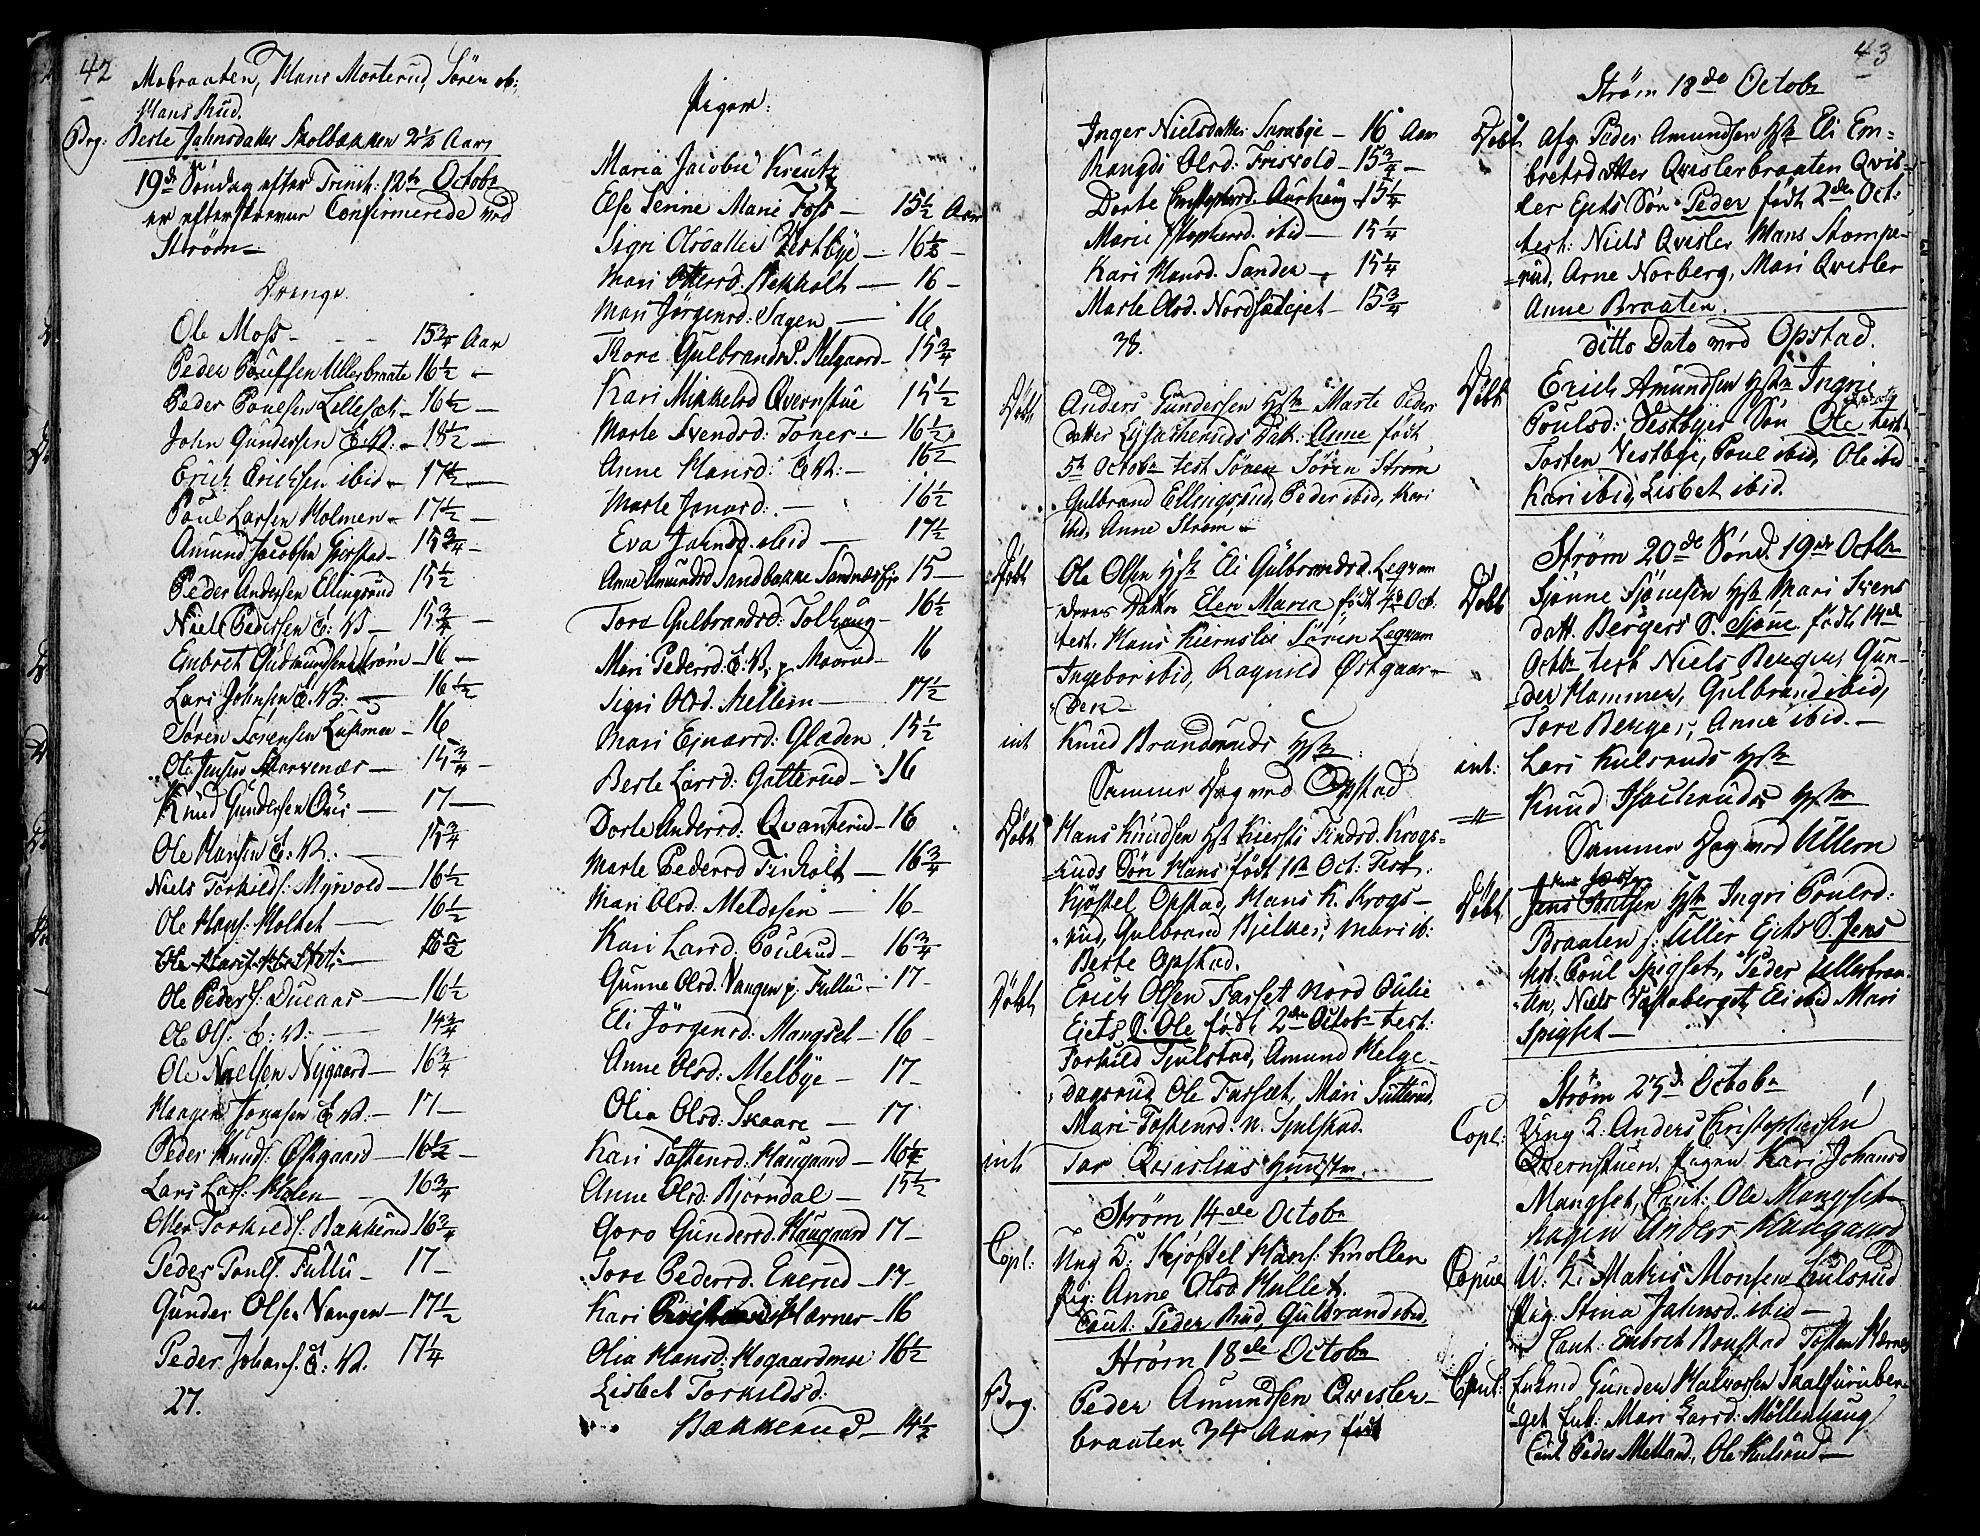 42
Mobraaten, Hans Mosterud, Sören ib:
Hans Rud.
Beg: Berte Jahnsdatter Skolbækken 2½ Aars
19de Söndag efter Trinit: 12te Octobr
er efterskrevne Confirmerede ved
Ström
Drenge
Ole Moss - - - 15¾ Aar
Peder Poulsen Ullerbraate 16½ -
Peder Poulsen Lillesæt - 16½ -
John Gundersen E: V: - 18½ -
Erich Erichsen ibid - 17½ -
Poul Larsen Holmen - 17½ -
Amund Jacobsen Gierstad - 15¾ -
Peder Andersen Ellingsrud 15½
Niels Pedersen E: V - 15¾ -
Embret Gudmundsen Ström - 16 -
Lars Johnsen E: V: - 16½
Sören Sörensen - 16
Ole Jensen Skarvenær - 15¾ -
Knud Gundersen Öiis - 17 -
Ole Hansen E: V: - 15¾
Niels Torkilds: Myrvold - 16½
Ole Hans: Moltet - 16½
Ole Peders: - 16½
Ole Ols: E: V: - 14¾
Ole Nielsen Nygaard - 16¾
Haagen Jonasen E V: - 17 -
Peder Knuds: Östgaard - 16½ -
Lars Lars: Holen - 16¾
Otter Torkilds: Bækkerud 16¾
Peder Pouls. Fullu - 17 -
Gunder Olsen Vangen - 17½
Peder Johans: E: V. 17¼
27.
Piger:
Maria Jacobie Kreutz
Else Sinne Marie Foss - 15½ Aar
Sigri Olsdatter Vestbye - 16½ -
Mari Ottersd. Nekholt - 16 -
Mari Jörgensd: Hagen - 16
Thore Gulbrandsd. Melgaard - 15¾
Kari Mikkelsd Qvernstue 15½
Marte Svendsd: Toner - 16½
Anne Hansd: E V: - 16½
Marte Jonasd: - 16½
Eva Jahnsd. ibid - 17½
Anne Amundsd Sandbakke Sandnæs Eje 15 -
Tore Gulbrandsd: Tolhaug - 16½
Mari Pedersd: E: V: p Moerud - 16
Sigri Olsd. Mellem - 17½
Mari Ejnersd: Gladen 15½
Berte Larsd: Gatterud - 16
Dorte Andersd: Qvanterud - 16
Marte Pedersd Finholt - 16¾
Mari Olsd: Meldesen - 16 -
Kari Larsd: Poulerud - 16¾
Gunne Olsd. Vangen p: Fullu - 17 -
Eli Jörgensd: Mangset - 16 -
Anne Olsd: Melbye - 17 -
Olia Olsd: Skaare - 17
Kari Tostensd: Haugaard - 16½
Anne Olsd: Bjørndal - 15½
Goro Gundersd. Haugaard 17 -
Tore Pedersd. Enerud - 17 -
Kari Christensd Hærner - 16
Olia Hansd: Hogaardmoe 16½
Lisbet Torkildsd:
Bækkerud - 14½
Inger Nielsdatter Strabye - 16 Aar
Mangdi Olsd: Frisvold - 15¾ -
Dorte Christophersd. Aurhaug 15¼
Marie Stophersd. ibid - 15¼
Kari Hansd. Sander - 15¼
Marte Olsd. Nordsætejet - 15¾
38.
Döbt Anders Gundersen Hst: Marte Peder
datter Lysacheruds Datt: Anne født
5te Octobr test Sören Ström
Gulbrand Ellingsrud, Peder ibid, Kari
ibid, Anne Ström -
Döbt Ole Olsen Hst: Eli Gulbrandsd. Legvam
deres Datter Elen Maria født 4de Oct:
test: Hans Kiernslie Sören Legvam
Ingebor ibid, Ragnild Østgaar-
den -
int Knud Branderuds Hst:
Samme Dag ved Opstad
Döbt Hans Knudsen Hst Kiersti Findsd. Krogs-
ruds Sön Hans født 1te Oct: Test:
Kjöstel Opstad, Hans K. Krogs-
rud, Gulbrand Bjelker, Mari ib:
Berte Opstad.
Döbt Erich Olsen Farset nord Oulie
Ejets S. Ole født 2den Octobr test:
Torkild Sjulstad, Amund Helge-
dagsrud, Ole Farsæt, Mari Sutterud,
Mari Tostensd: n. Sjulstad.
int Tor Qveislies Hustr.
Ström 14de Octobr
Copl: Ung K: Kjöstel Hans: Knollen
Pig: Anne Olsd Hullet.
Caut: Peder Rud, Gulbrand ibid.
Ström 18de Octobr
Beg. Peder Amundsen Qvisler-
braaten 34 Aar,
43
Ström 18de Octobr
Döbt afg. Peder Amundsen Hst: Eli Em-
bretsdatter Qvislerbraaten Qvis-
ler Ejets Sön Peder født 2den Oct:
test: Niels Qvisler Hans Stompe-
rud, Arne Norberg, Mari Qvisler
Anne Braaten.
Ditto Dato ved Opstad.
Döbt Erich Amundsen Hst: Ingrie
Poulsd: Vestbyes Sön Ole test:
Tosten Vestbye, Poul ibid, Ole ibid
Kari ibid, Lisbet ibid.
Ström 20de Sönd. 19de Octbr
Döbt Sjønne Sjønesen Hst: Mari Svens
datt. Bergers S. Sjöne født 14de
Octbr test Niels Berger, Gun-
der Hammer, Gulbrand ibid,
Tore Berger, Anne ibid. -
int: Lars Kulsruds Hst:
= Knud Isacheruds Hst:
Samme Dag ved Ullern
Döbt Jens Knutsen Hst: Ingri Poulsd:
Braaten p: Uller Ejets S. Jens
test: Poul Spigset, Peder Ullerbraa-
ten, Niels Taskeberget, Eli ibid Mari
Spigset -
Ström 25de Octobr
Copl: Ung K: Anders Christophersen
Qvernstuen. Pigen Kari Johansd
Mangset, Caut: Ole Mangset
hagen Anders Haugaard
Copul U: K: Mathis Monsen Kulsrud
Pig. Stina Jahnsd. ibid -
Caut: Embret Noustad Tosten Hærnes
Copul: Enkemd Gunder Halvorsen Skalsuruber-
get Enk: Mari Larsd: Möllenhaug
Caut Peder Melland, Ole Kulsrud -